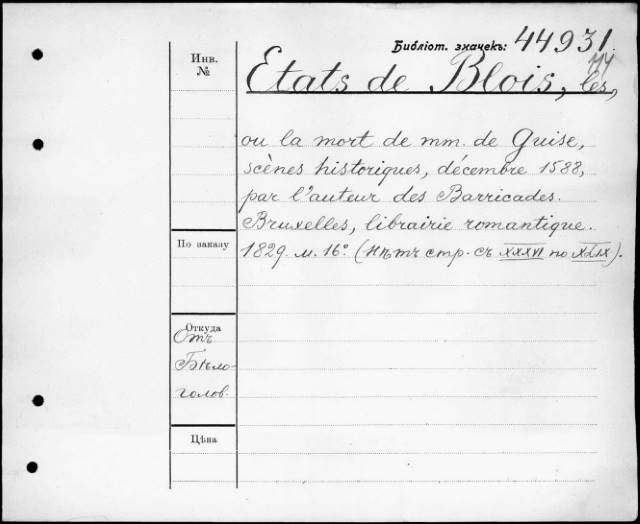 Библіот. значекъ: 44931.
44
Инв.
№
Etats de Blois, les,
ou la mort de mm. de Guise,
scènes historiques, décembre 1588,
par l'auteur des Barricades.
Bruxelles, librairie romantique.
1829. м. 16° (нѣтъ стр. съ XXXVI по XLIX).
По заказу
Откуда
Отъ
Бѣло-
голов.
Цѣна